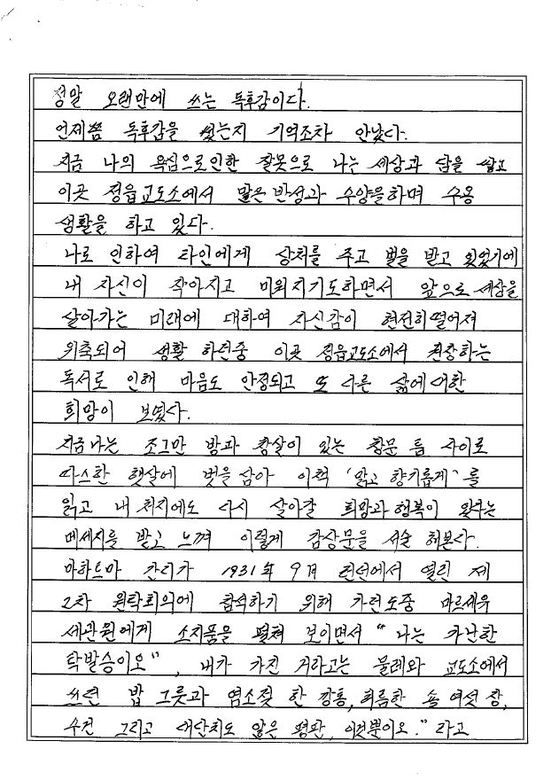 정말 오랜만에 쓰는 독후감이다.
언제쯤 독후감을 썼는지 기억조차 안났다.
지금 나의 욕심으로인한 잘못으로 나는 세상과 담을 쌓고
이곳 정읍교도소에서 많은 반성과 수양을하며 수용
생활을 하고 있다.
나로 인하여 타인에게 상처를 주고 벌을 받고 있었기에
내 자신이 작아지고 미워지기도하면서 앞으로 세상을
살아가는 미래에 대하여 자신감이 현전히떨어져
위축되어 생활 하던중 이곳 정읍교도소에서 권장하는
독서로 인해 마음도 안정되고 또 다른 삶에대한
희망이 보였다.
지금나는 조그만 방과 창살이 있는 창문 틈 사이로
따스한 햇살에 벗을삼아 이책 '맑고 향기롭게'를
읽고 내 처지에도 다시 살아갈 희망과행복이 있다는
메세지를 받고 느껴 이렇게 감상문을 서술 해본다.
마하트마 간디가 1931年 9月 런던에서 열린 제
2차 원탁회의에 참석하기 위해 가던도중 마르세유
세관원에게 소지품을 펼쳐 보이면서 "나는 가난한
탁발승이오", 내가 가진 거라고는 물레와 교도소에서
쓰던 밥 그릇과 염소젖 한 깡통, 허름한 숄 여섯 장,
수건 그리고 대단치도 않은 평판, 이것뿐이오." 라고